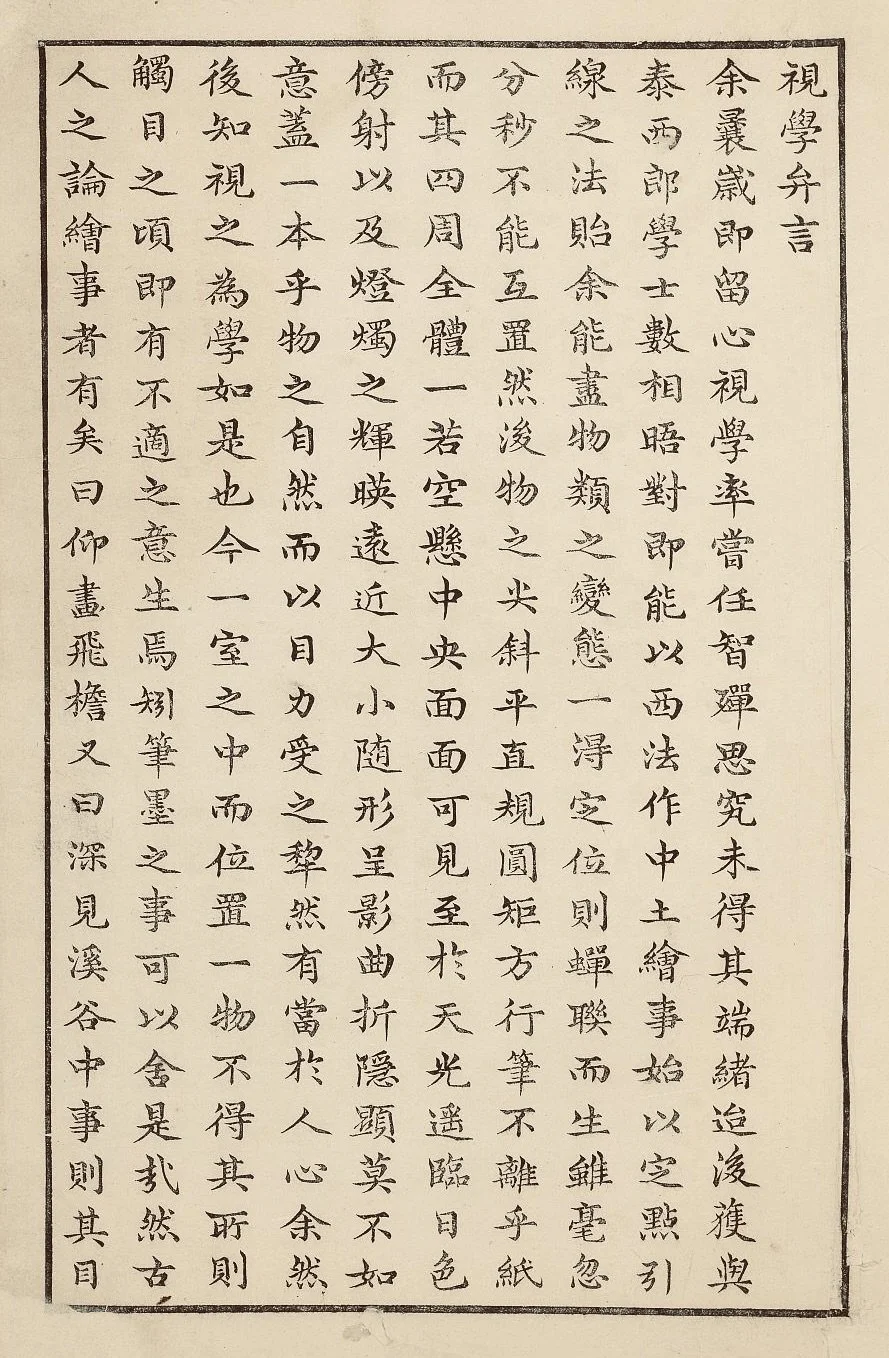 視學弁言
余曩歲即留心視學率嘗任智殫思究未得其端緒迨後獲與
泰西郎學士數相晤對即能以西法作中土繪事始以定點引
線之法貽余能盡物類之變態一得定位則蟬聯而生雖毫忽
分秒不能互置然後物之尖斜平直規圓矩方行筆不離乎紙
而其四周全體一若空懸中央面面可見至於天光遥臨日色
傍射以及燈燭之輝暎遠近大小随形呈影曲折隱顯莫不如
意蓋一本乎物之自然而以目力受之犂然有當於人心余然
後知視之為學如是也今一室之中而位置一物不得其所則
觸目之頃即有不適之意生焉矧筆墨之事可以舍是哉然古
人之論繪事者有矣曰仰畫飛檐又曰深見溪谷中事則其目